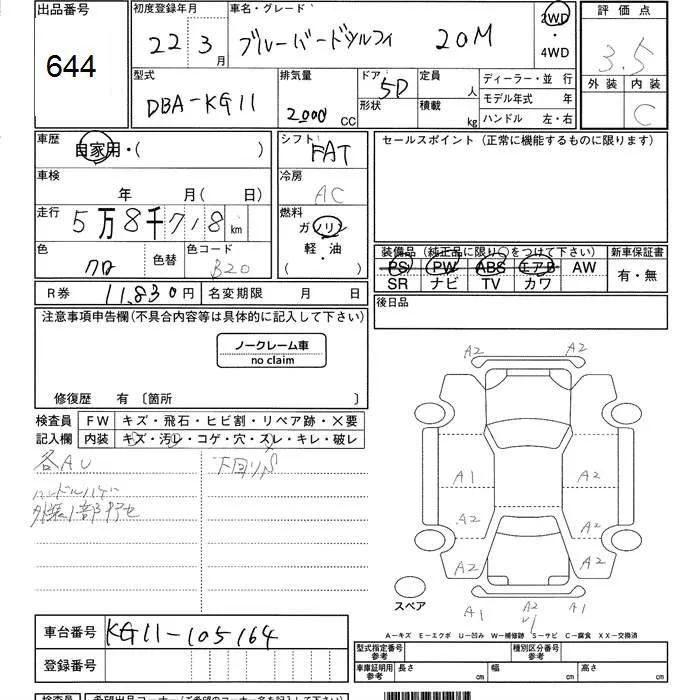 出品番号
644
初度登録年月
22 3月
車名・グレード
ブルーバードシルフィ 20M
2WD
・
4WD
評価点
3.5
外装 内装
C
型式
DBA-KG11
排気量
2000cc
ドア
5D
形状
定員
人
積載
kg
ディーラー・並 行
モデル年式 年
ハンドル 左・右
車歴
自家用・( )
シフト
FAT
セールスポイント (正常に機能するものに限ります)
車検
年 月( 日)
冷房
AC
走行
5万8千718km
燃料
ガソリン
軽・油
( )
色
クロ
色替
色コード
B20
装備品 (純正品に限り○をつけて下さい)
PS PW ABS エアB AW
SR ナビ TV カワ
新車保証書
有・無
R券 11,830円
名変期限 月 日
後日品
注意事項申告欄(不具合内容等は具体的に記入して下さい)
ノークレーム車
no claim
修復歴 有 〔箇所 〕
検査員
記入欄
FW キズ・飛石・ヒビ割・リペア跡・×要
内装 キズ・汚レ・コゲ・穴・スレ・キレ・破レ
各AU
ハンドルハゲ
外装1部アセ
下回りS
A2 A2
A1 A2
A2 A2
A2 A2
A1 A2 A1
U1
スペア
A-キズ E-エクボ U-凹み W-補修跡 S-サビ C-腐食 XX-交換済
車台番号
KG11-105164
登録番号
型式指定番号
参考
種別区分番号
参考
車庫証明用
参考
長さ cm 幅 cm 高さ cm
検査員
希望出品コーナー(ご希望のコーナー名を記入下さい)